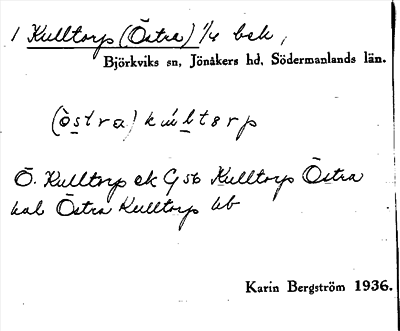 1 Kulltorp (Östra) 1/4 bek,
Björkviks sn, Jönåkers hd, Södermanlands län.
(östra) kultorp
Ö. Kulltorp ek G sb Kulltorp Östra
hab Östra Kulltorp hb
Karin Bergström 1936.